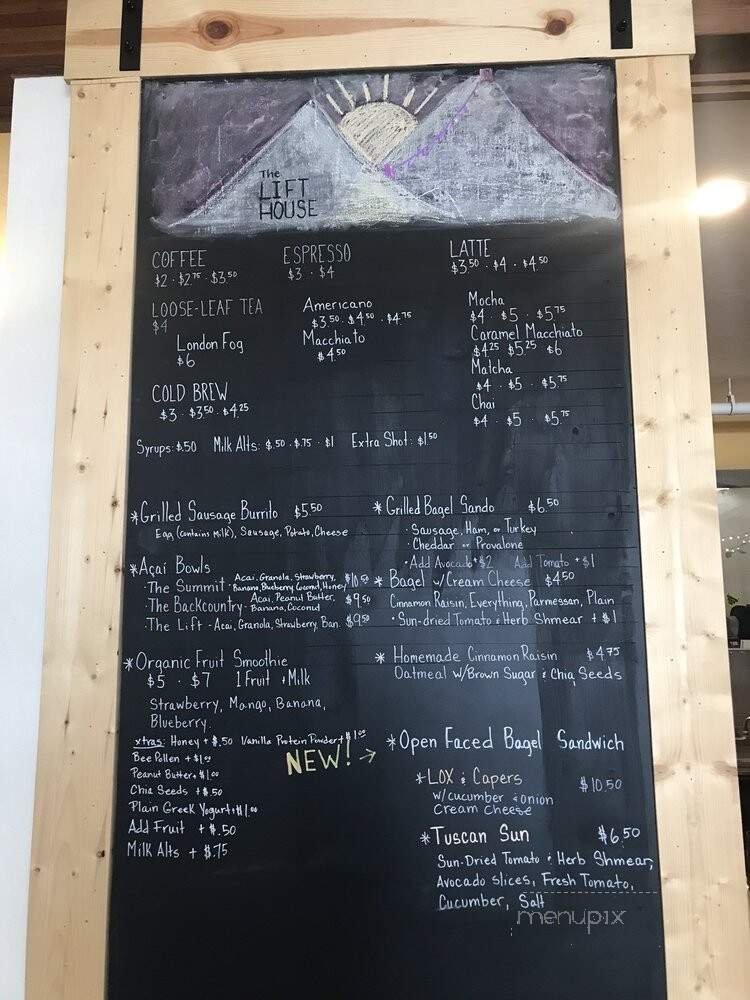 The
LIFT
HOUSE
COFFEE
$2 · $2.75 · $3.50
LOOSE-LEAF TEA
$4
London Fog
$6
COLD BREW
$3 · $3.50 · $4.25
ESPRESSO
$3 · $4
Americano
$3.50 · $4.50 · $4.75
Macchiato
$4.50
LATTE
$3.50 · $4 · $4.50
Mocha
$4 · $5 · $5.75
Caramel Macchiato
$4.25 $5.25 $6
Matcha
$4 · $5 · $5.75
Chai
$4 · $5 · $5.75
Syrups: $.50 Milk Alts: $.50 · $.75 · $1 Extra Shot: $1.50
*Grilled Sausage Burrito $5.50
Egg (contains milk), Sausage, Potato, Cheese
*Açai Bowls
·The Summit - Acai, Granola, Strawberry, $10.50
Banana, Blueberry, Coconut, Honey
·The Backcountry - Acai, Peanut Butter, $9.50
Banana, Coconut
·The Lift - Acai, Granola, Strawberry, Ban. $9.50
*Organic Fruit Smoothie
$5 · $7 1 Fruit + Milk
Strawberry, Mango, Banana,
Blueberry.
xtras: Honey + $.50 Vanilla Protein Powder + $1.00
Bee Pollen + $1.00
Peanut Butter + $1.00
Chia Seeds + $.50
Plain Greek Yogurt + $1.00
Add Fruit + $.50
Milk Alts + $.75
*Grilled Bagel Sando $6.50
·Sausage, Ham, or Turkey
·Cheddar or Provalone
·Add Avocado + $2 Add Tomato + $1
*Bagel w/Cream Cheese $4.50
Cinnamon Raisin, Everything, Parmesan, Plain
·Sun-dried Tomato & Herb Shmear + $1
*Homemade Cinnamon Raisin $4.75
Oatmeal w/Brown Sugar & Chia Seeds
NEW! → *Open Faced Bagel Sandwich
*LOX & Capers $10.50
w/cucumber & onion
Cream Cheese
*Tuscan Sun $6.50
Sun-Dried Tomato & Herb Shmear,
Avocado slices, Fresh Tomato,
Cucumber, Salt
menupix